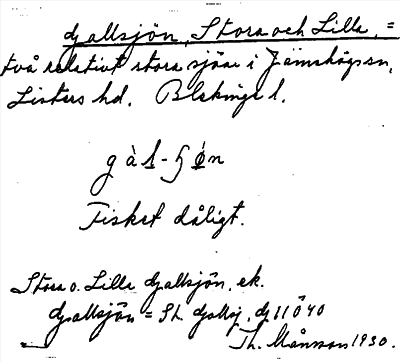 Gallsjön, Stora och Lilla, =
två relativt stora sjöar i Jämshögs sn,
Listers hd. Blekinge l.
g à l - ʃ ǿ n
Fisket dåligt.
Stora o. Lilla Gallsjön, ek.
Gallsjön = St.
Th. Månsson 1930.